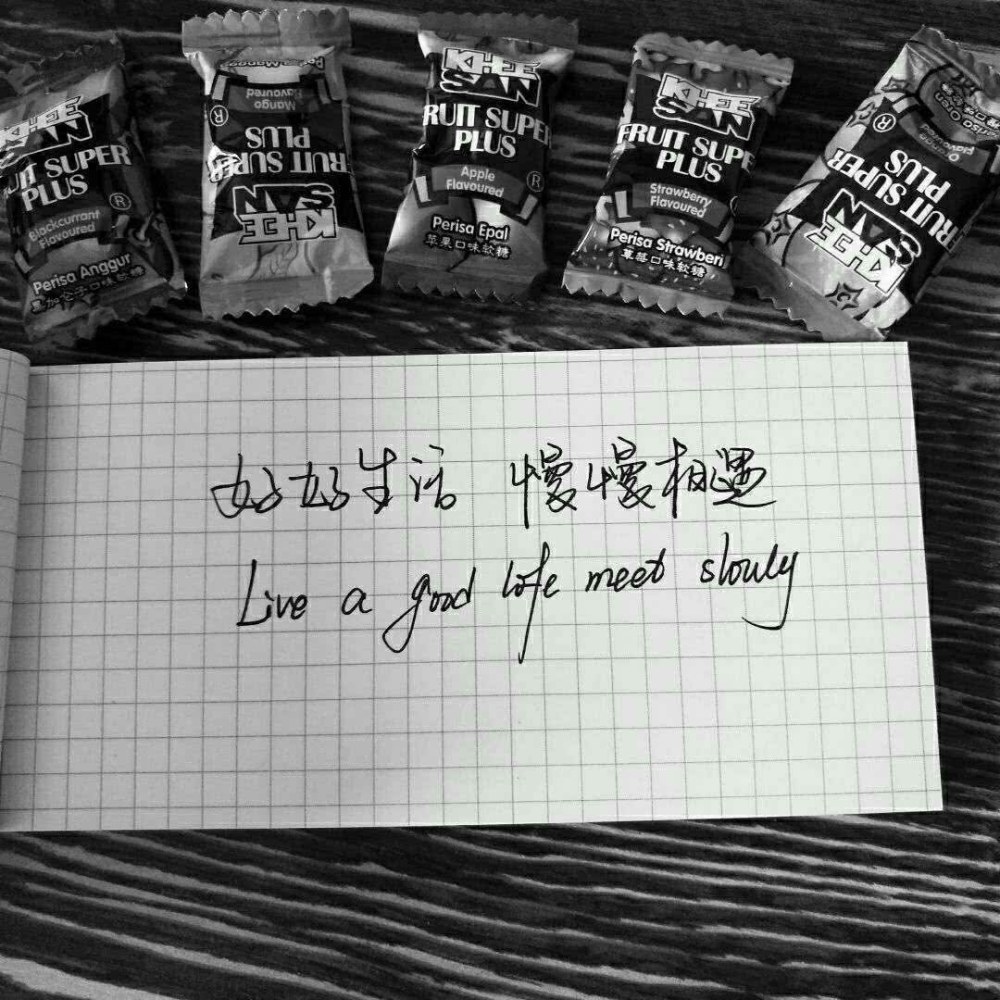 KHEE
SAN
UIT SUPER
PLUS
®
Blackcurrant
Flavoured
Perisa Anggur
黑加仑子口味软糖
KHEE
SAN
FRUIT SUPE
PLUS
®
Mango
Flavoured
Perisa Mangga
KHEE
SAN
RUIT SUPER
PLUS
®
Apple
Flavoured
Perisa Epal
苹果口味软糖
KHEE
SAN
FRUIT SUPE
PLUS
Strawberry
Flavoured
Perisa Strawberi
草莓口味软糖
KHEE
SAN
FRUIT SUPER
PLUS
®
Orange
Flavoured
Perisa Oren
好好生活 慢慢相遇
Live a good life meet slowly